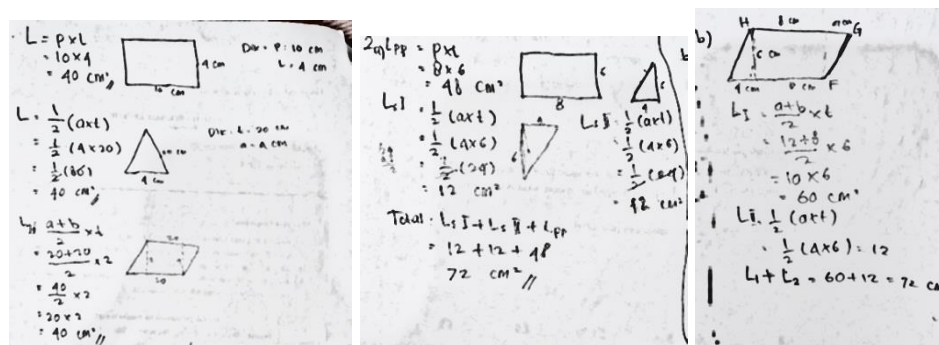 L = P x L
= 10 x 4
= 40 cm²//
4 cm
10 cm
Dik = P : 10 cm
L : 4 cm
L = 1/2 (axt)
= 1/2 (4 x 20)
= 1/2 (80)
= 40 cm²//
4 cm
Dik : t : 20 cm
a = 4 cm
a+b/2 x t
= 20+20/2 x 2
= 40/2 x 2
= 20 x 2
= 40 cm²//
20
20
2 a) Lpp = P x L
= 8 x 6
= 48 cm²
6
8
Ls I = 1/2 (axt)
= 1/2 (4x6)
= 1/2 (24)
= 12 cm²
4
6
Ls II = 1/2 (axt)
= 1/2 (4x6)
= 1/2 (24)
= 12 cm²
Total : Ls I + Ls II + Lpp
= 12 + 12 + 48
72 cm²//
b)
H
8 cm
4 cm
G
6 cm
4 cm
8 cm
F
LI = a+b/2 x t
= 12+8/2 x 6
= 10 x 6
= 60 cm²
LII = 1/2 (axt)
= 1/2 (4x6) = 12
L1 + L2 = 60 + 12 = 72 cm